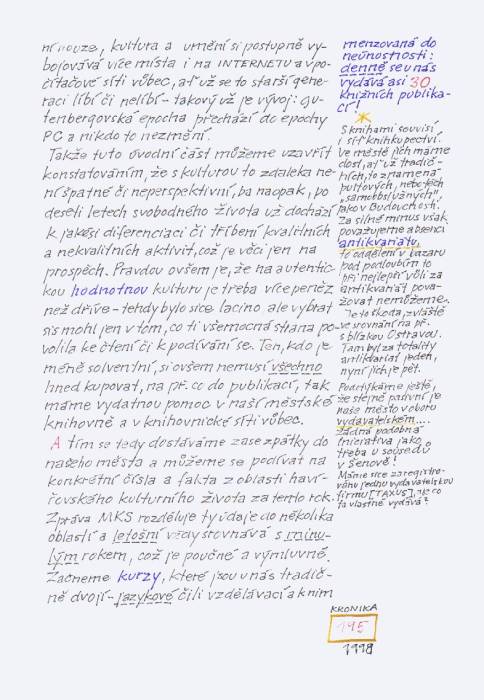 ní nouze, kultura a umění si postupně vy-
bojovává více místa i na INTERNETU a v po-
čítačové síti vůbec, ať už se to starší gene-
raci líbí či nelíbí - takový už je vývoj: gu-
tenbergovská epocha přechází do epochy
PC a nikdo to nezmění.
Takže tuto úvodní část můžeme uzavřít
konstatováním, že s kulturou to zdaleka ne-
ní špatné či neperspektivní, ba naopak, po
deseti letech svobodného života už dochází
k jakési diferenciaci či tříbení kvalitních
a nekvalitních aktivit, což je věci jen na
prospěch. Pravdou ovšem je, že na autentic-
kou hodnotnou kulturu je třeba více peněz
než dříve - tehdy bylo sice lacino ale vybrat
sis mohl jen v tom, co ti všemocná strana po-
volila ke čtení či k podívání se. Ten, kdo je
méně solventní, si ovšem nemusí všechno
hned kupovat, na př. co do publikací, tak
máme vydatnou pomoc v naší městské
knihovně a v knihovnické síti vůbec.
A tím se tedy dostáváme zase zpátky do
našeho města a můžeme se podívat na
konkrétní čísla a fakta z oblasti haví-
řovského kulturního života za tento rok.
Zpráva MKS rozděluje ty údaje do několika
oblastí a letošní vždy srovnává s minu-
lým rokem, což je poučné a výmluvné.
Začneme kurzy, které jsou u nás tradič-
ně dvojí - jazykové čili vzdělávací a k nim
menzovaná do
neúnosnosti:
denně se u nás
vydává asi 30
knižních publika-
cí!
S knihami souvisí
i síť knihkupectví.
Ve městě jich máme
dost, ať už tradič-
ních, to znamená
pultových, nebo těch
"samoobslužných",
jako v Budoucnosti.
Za silné minus však
považujeme absenci
antikvariátu,
to oddělení v bazaru
pod podloubím to
při nejlepší vůli za
antikvariát pova-
žovat nemůžeme.
Je to škoda, zvláště
ve srovnání na př.
s blízkou Ostravou.
Tam byl za totality
antikvariát jeden,
nyní jich je pět.
Podotýkáme ještě,
že stejně pasivní je
naše město v oboru
vydavatelském...
žádná podobná
iniciativa jako
třeba u sousedů
v Šenově!
Máme sice zaregistro-
vánu jednu vydavatelskou
firmu [TAXUS], ale co
ta vlastně vydává?
KRONIKA
195
1998